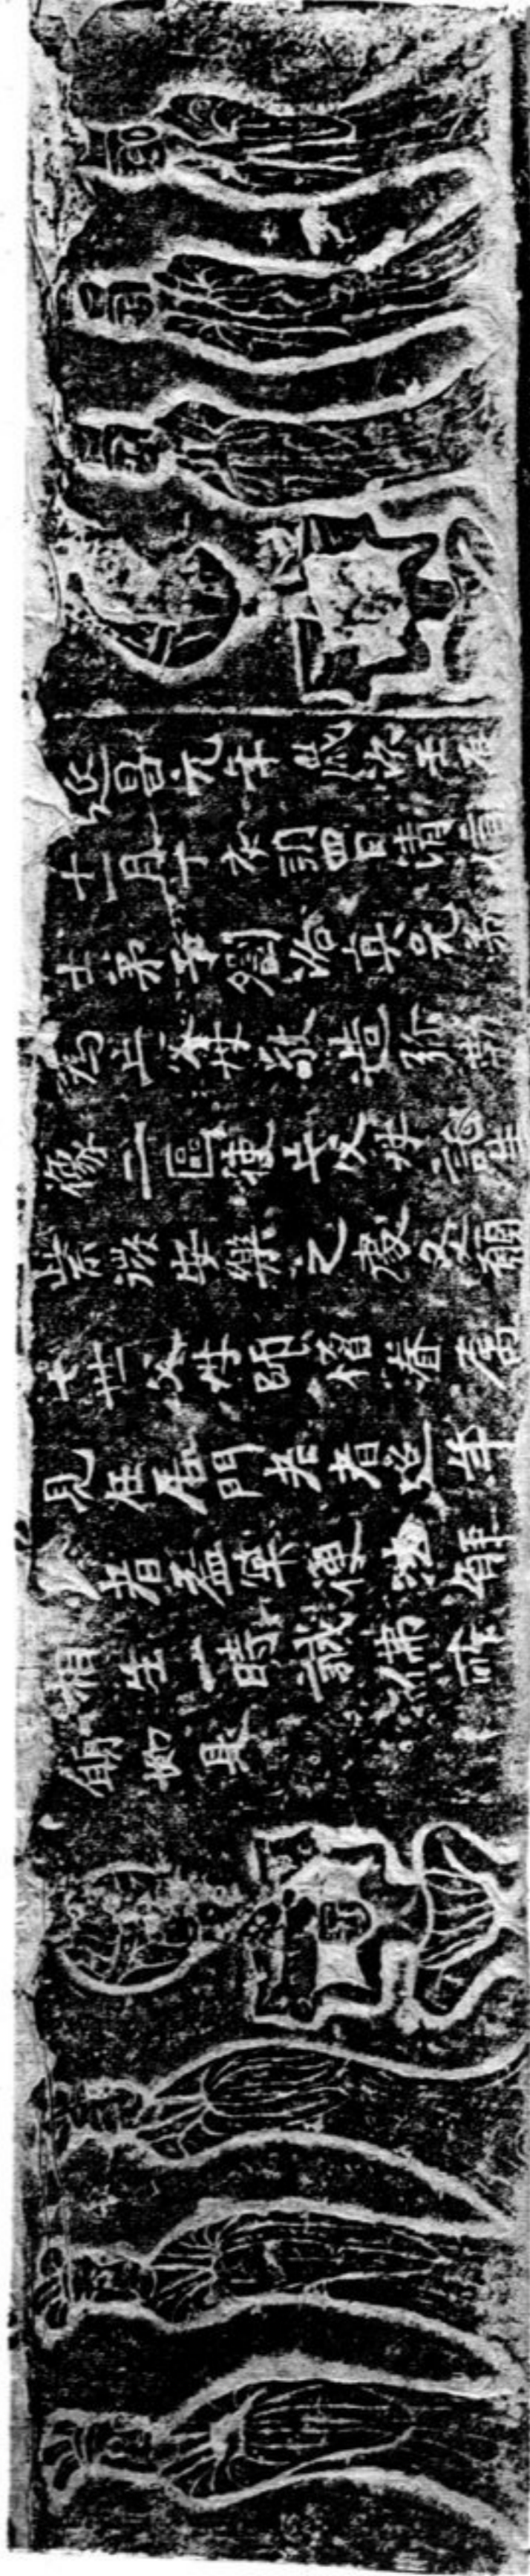 延昌元年歲次壬辰
十一月丁亥朔四日清信
士弟子劉洛真兄弟
為亡父母敬造弥勒
像二區使亡父母託生
紫微安樂之處又願
七世父母師僧眷属
見在居門老者延年
少者益算使法解
相生一時誠佛所
願如是